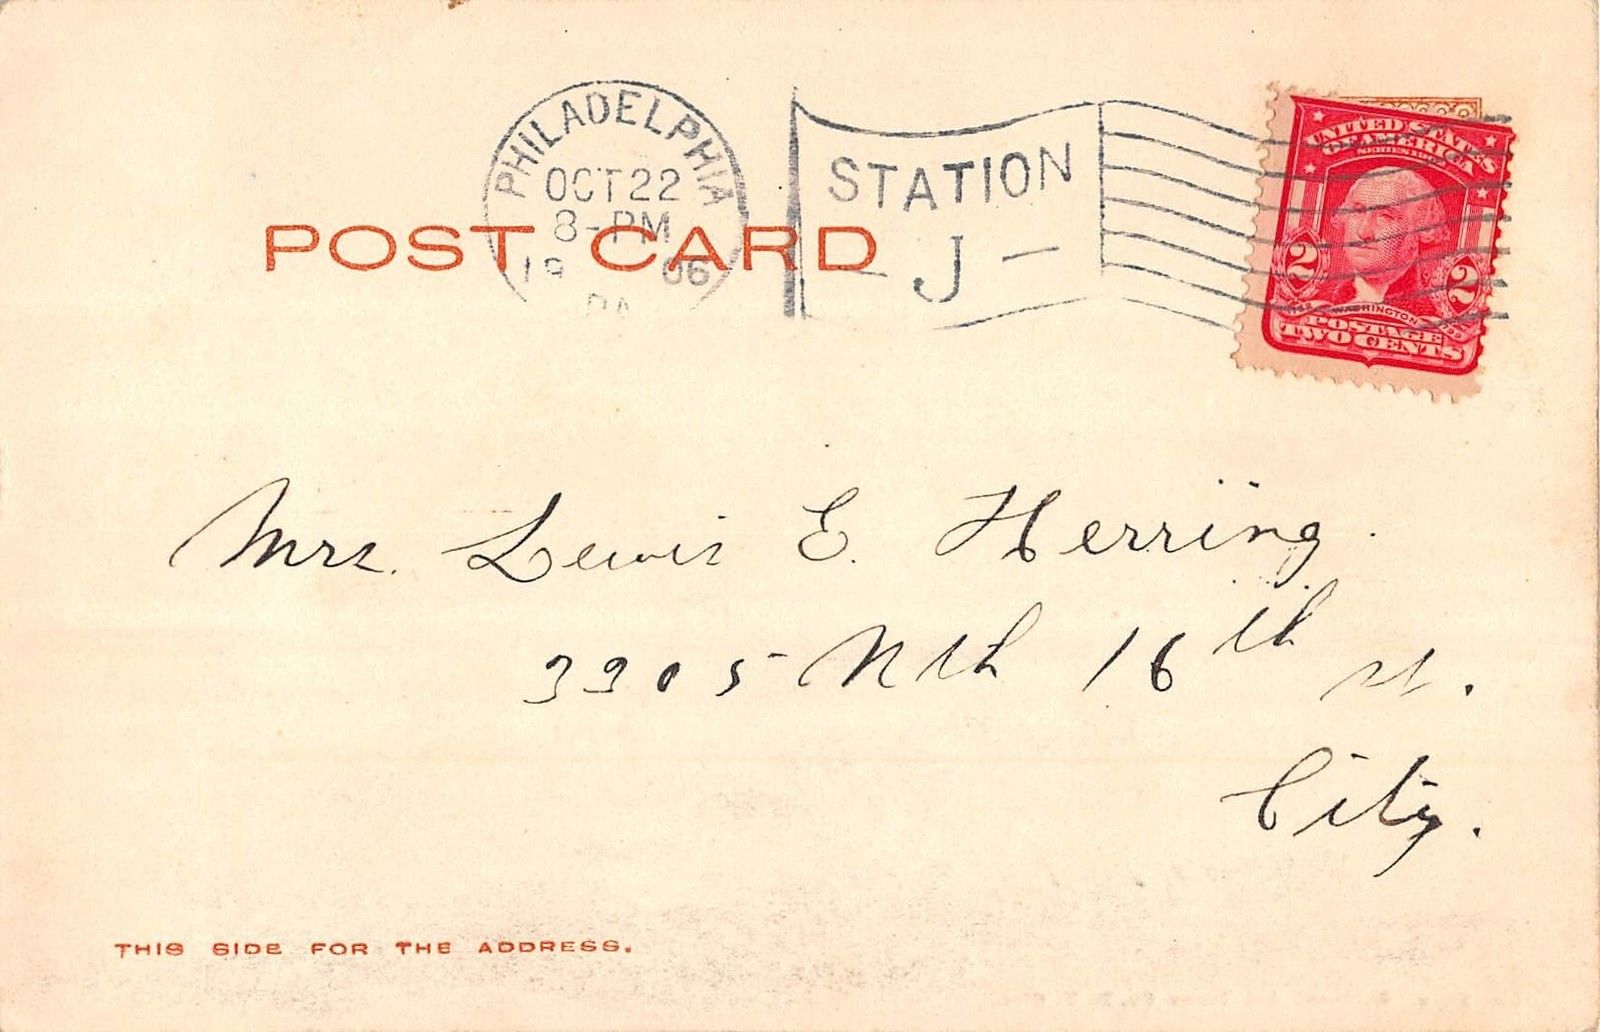 PHILADELPHIA
OCT 22
8-PM
1906
PA
STATION
- J -
UNITED STATES
OF AMERICA
SERIES 1902
2 2
WASHINGTON
POSTAGE
TWO CENTS
POST CARD
Mrs. Lewis E. Herring.
3305 Nth 16th st.
City.
THIS SIDE FOR THE ADDRESS.